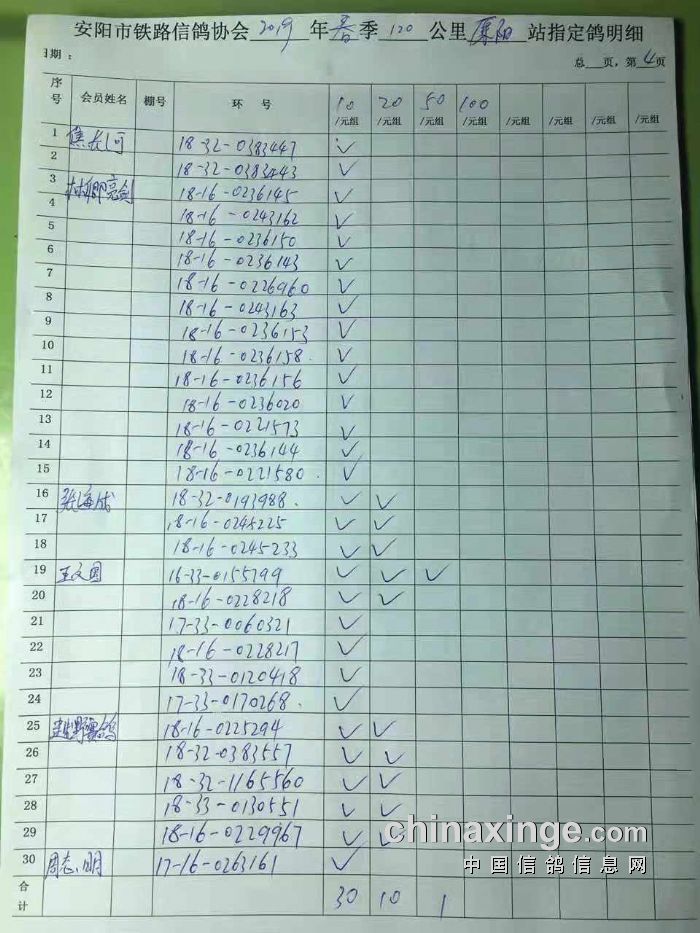 安阳市铁路信鸽协会 2019 年 春 季 120 公里 原阳 站指定鸽明细
日期： 总 页，第 4 页
序号 会员姓名 棚号 环号 10/元组 20/元组 50/元组 100/元组 /元组 /元组 /元组 /元组
1 焦长河 18-32-0383447 ✓
2 18-32-0383443 ✓
3 18-16-0236145 ✓
4 18-16-0243162 ✓
5 18-16-0236150 ✓
6 18-16-0236143 ✓
7 18-16-0226960 ✓
8 18-16-0243163 ✓
9 18-16-0236153 ✓
10 18-16-0236158 ✓
11 18-16-0236156 ✓
12 18-16-0236020 ✓
13 18-16-0221573 ✓
14 18-16-0236144 ✓
15 18-16-0221580 ✓
16 张海成 18-32-0193988 ✓ ✓
17 18-16-0245225 ✓ ✓
18 18-16-0245233 ✓ ✓
19 王文国 16-33-0155799 ✓ ✓ ✓
20 18-16-0228218 ✓ ✓
21 17-33-0060321 ✓
22 18-16-0228217 ✓
23 18-33-0120418 ✓
24 17-33-0170268 ✓
25 18-16-0225294 ✓ ✓
26 18-32-0383557 ✓ ✓
27 18-32-1165560 ✓ ✓
28 18-33-0130551 ✓ ✓
29 18-16-0229967 ✓ ✓
30 周志明 17-16-0263161 ✓
合计 30 10 1
chinaxinge.com
中国信鸽信息网